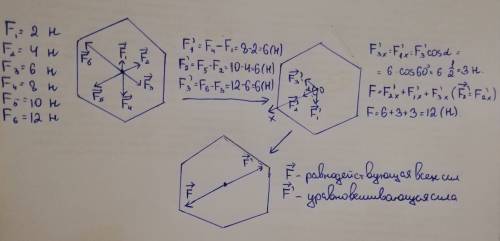 F₁ = 2 н
F₂ = 4 н
F₃ = 6 н
F₄ = 8 н
F₅ = 10 н
F₆ = 12 н
F⃗₁
F⃗₂
F⃗₆
F⃗₃
F⃗₅
F⃗₄
F₁' = F₄ - F₁ = 8 - 2 = 6 (н)
F₂' = F₅ - F₂ = 10 - 4 = 6 (н)
F₃' = F₆ - F₃ = 12 - 6 = 6 (н)
F⃗₃'
F⃗₂'
F⃗₁'
O
α
x
F₃ₓ' = F₁ₓ' = F₃' cos α =
= 6 cos 60° = 6 · 1/2 = 3 н.
F = F₂ₓ' + F₁ₓ' + F₃ₓ' (F⃗₂' = F⃗₂ₓ')
F = 6 + 3 + 3 = 12 (н)
F⃗'
F⃗
F⃗ - равнодействующая всех сил
F⃗' - уравновешивающая сила